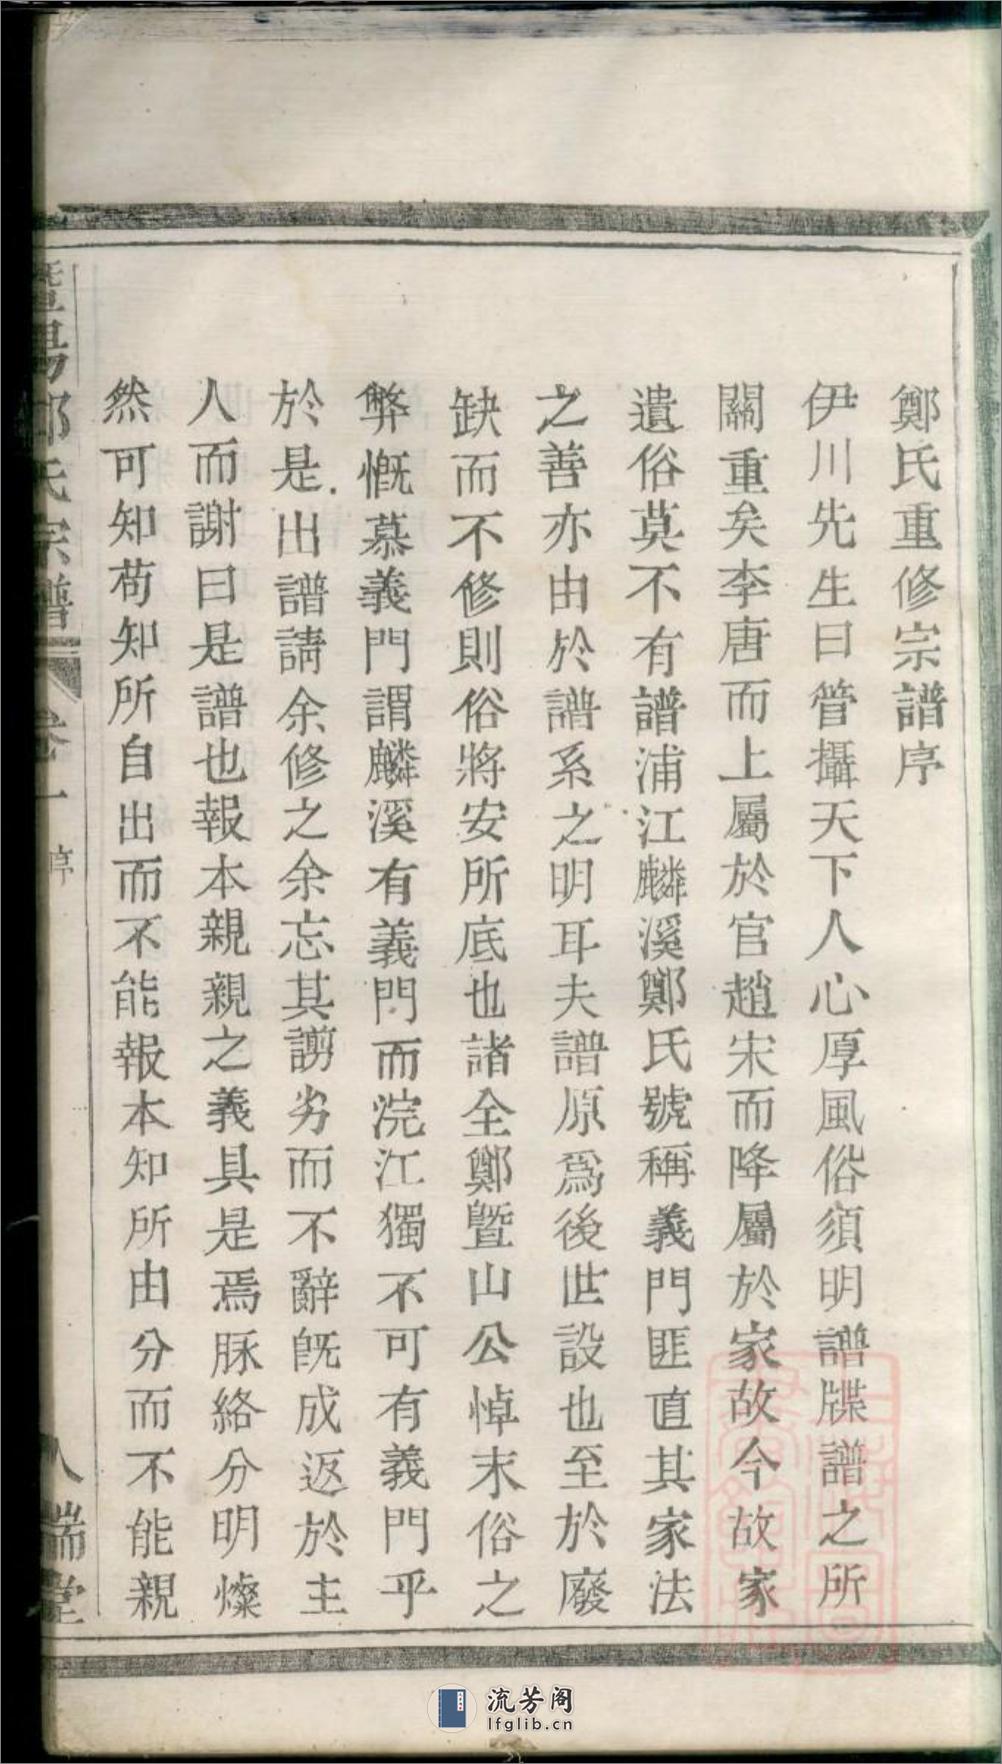 鄭氏重修宗譜序
伊川先生曰管攝天下人心厚風俗須明譜牒譜之所
關重矣李唐而上屬於官趙宋而降屬於家故今故家
遺俗莫不有譜浦江麟溪鄭氏號稱義門匪直其家法
之善亦由於譜系之明耳夫譜原爲後世設也至於廢
缺而不修則俗將安所底也諸全鄭曁山公悼末俗之
弊慨慕義門謂麟溪有義門而浣江獨不可有義門乎
於是出譜請余修之余忘其謭劣而不辭旣成返於主
人而謝曰是譜也報本親親之義具是焉脉絡分明燦
然可知苟知所自出而不能報本知所由分而不能親
暨昜鄭氏宗譜
卷一
序
八端堂
流芳阁
lfglib.cn